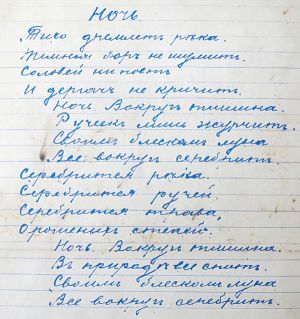 Ночь.
Тихо дремлетъ рѣка.
Темный боръ не шумитъ.
Соловей ни поетъ
И дергачъ не кричитъ.
Ночь. Вокругъ тишина.
Ручеекъ лишь журчитъ.
Своимъ блескомъ луна
Все вокругъ серебритъ.
Серебрится рѣка.
Серебрится ручей.
Серебрится трава,
Орошенныхъ степей.
Ночь. Вокругъ тишина.
Въ природѣ все спитъ.
Своимъ блескомъ луна
Все вокругъ серебритъ.